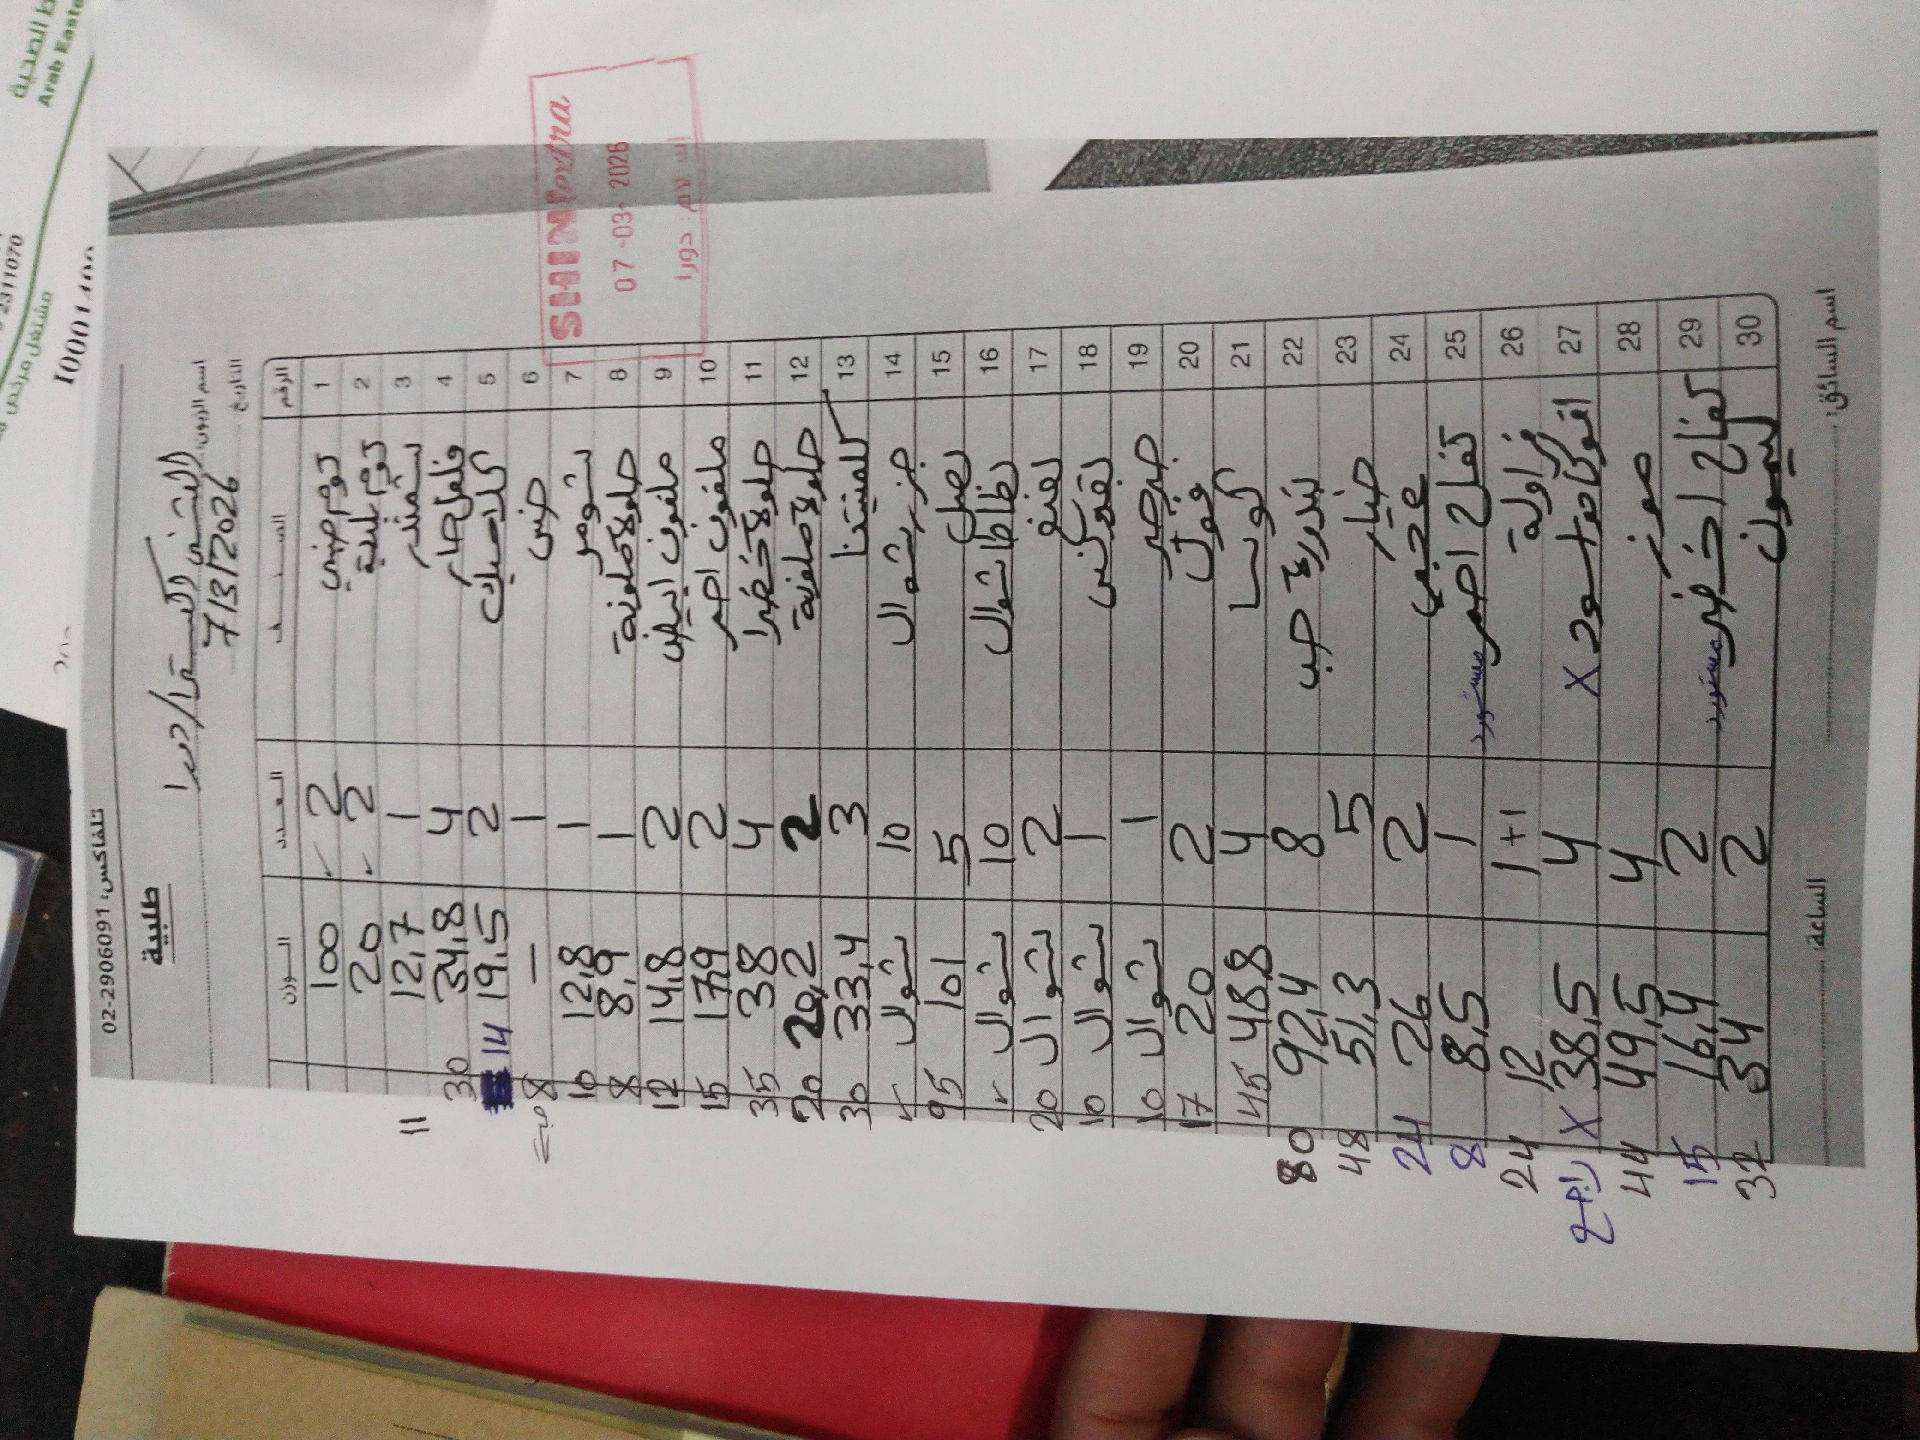 تلفاكس: 02-2906091
طلبية
اسم الزبون:
التاريخ 7/3/2026
SHINIextra
07-03-2026
دورا
الرقم الصنف العدد الوزن
1 2 100
2 2 20
3 1 12,7 11
4 4 34,8 30
5 2 19,5 14
6 خس 1 — 8 حبة
7 شومر 1 12,8 10
8 1 8,9 8
9 ملفوف ابيض 2 14,8 12
10 ملفوف احمر 2 17,9 15
11 4 38 35
12 2 20,2 20
13 كلمنتينا 3 33,4 30
14 جزر شوال 10 شوال ✓
15 بصل 5 101 95
16 بطاطا شوال 10 شوال ✓
17 2 شوال 20
18 بقدونس 1 شوال 10
19 1 شوال 10
20 2 20 17
21 كوسا 4 48,8 45
22 بندورة حب 8 92,4 80
23 خيار 5 51,3 48
24 2 26 24
25 تفاح احمر مستورد 1 8,5 8
26 فراولة 1+1 12 24
27 X 4 38,5 X
28 موز 4 49,5 44
29 تفاح اخضر مستورد 2 16,4 15
30 ليمون 2 34 32
اسم السائق: الساعة:
Arab Easte
2311070
مشتغل مرخص